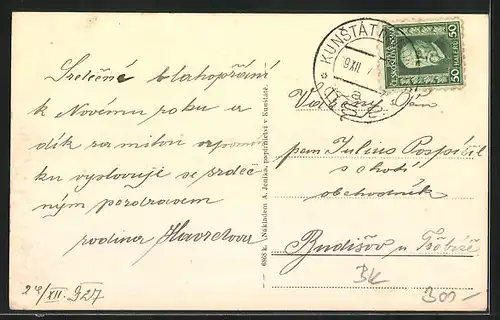 Srdečné blahopřání
k Novému roku a
dík za milou vzpomín
ku vyslovuje se srdeč
ným pozdravem
rodina
29/XII. 927
6868 k. Nákladem A. Jeníka, papírnictví v Kunštátě.
KUNŠTÁT
29 XII
a
ČESKOSLOVENSKO
50
50
HALÉŘŮ
Vážený Pán
pan Julius Pospíšil
obchodník
Budišov u Třebíče
BK
300-